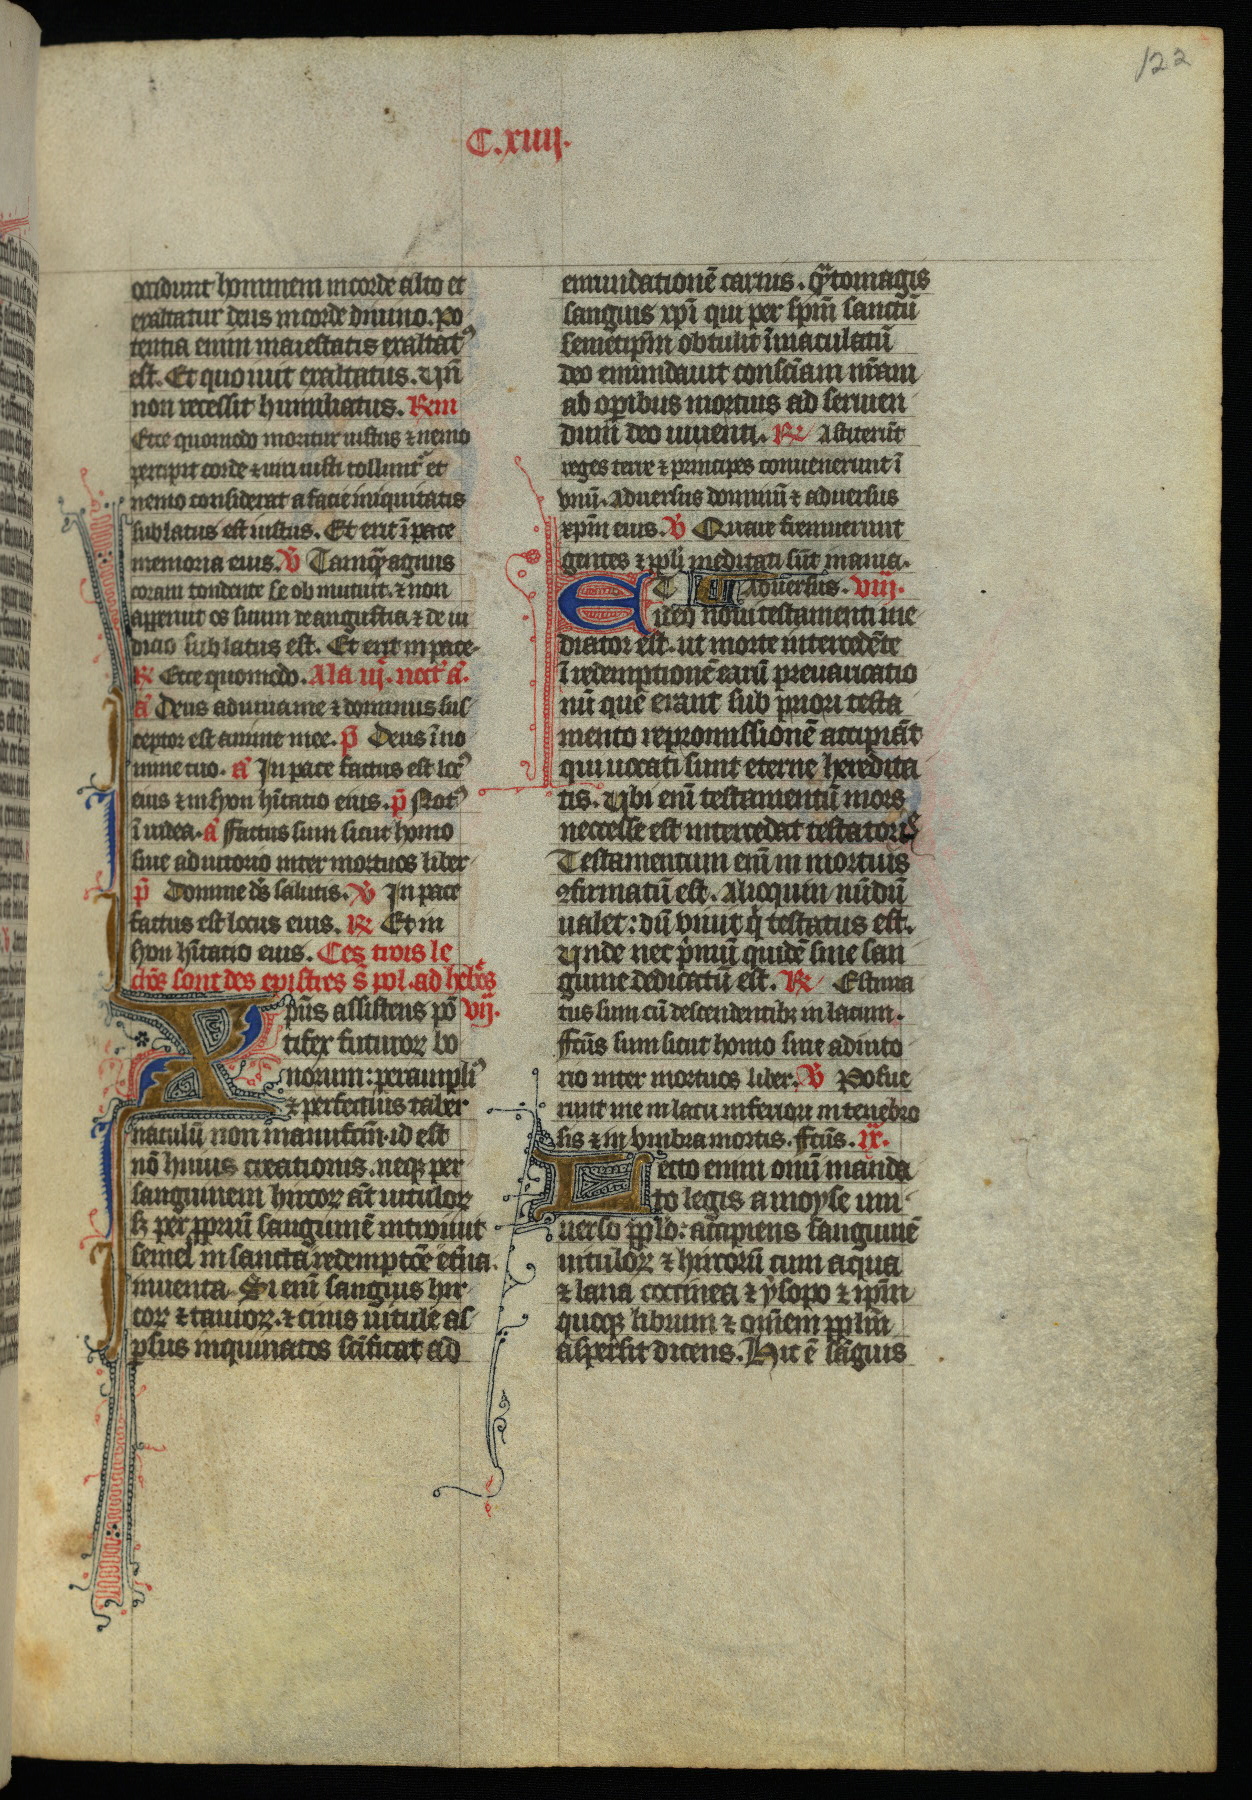 122
C.xiiij.
occidunt hominem in corde alto et
exaltatur deus in corde diuino. Po
tentia enim maiestatis exaltat᷒
est. Et quo iuit exaltatus. Vn̄
non recessit humiliatus. R̷m
Ecce quomodo moritur iustus ⁊ nemo
percipit corde ⁊ uiri iusti tollunt᷑ et
nemo considerat a facie iniquitatis
sublatus est iustus. Et erit ī pace
memoria eius. V̄ Tamq̄ agnus
coram tondente se obmutuit. ⁊ non
apperuit os suum de angustia ⁊ de iu
dicio sublatus est. Et erit in pace.
R̷ Ecce quomodo. A la iij. noct᷑ a͞.
a͞ Deus adiuua me ⁊ dominus sus
ceptor est anime mee. p̄ Deus ī no
mine tuo. a͞ In pace factus est loc᷒
eius ⁊ in syon h̄itatio eius. p̄ Not᷒
ī iudea. a͞ Factus sum sicut homo
sine adiutorio inter mortuos liber
p̄ Domine d̄s salutis. V̄ In pace
factus est locus eius. R̷ Et in
syon h̄itatio eius. Ces trois le
cōs sont des epistres s̄ pol. ad hebre᷒os
Xp̄us assistens pō vij.
tifex futuroꝝ bo
norum: per ampli᷒
⁊ perfectius taber
naculū non manufc̄m. id est
nō huius creationis. neqꝫ per
sanguinem hircoꝝ aut uituloꝝ
sꝫ per ꝓpriū sanguinē introiuit
semel in sancta redemptōe et̄na
inuenta. Si enī sanguis hir
coꝝ ⁊ tauroꝝ. ⁊ cinis uitule as
ꝑsus inquinatos sc̄ificat ad
emundationē carnis. q̄ntomagis
sanguis xp̄i qui per sp̄m sanctū
semetip̄m obtulit īmaculatū
deo emundauit conscīam nr̄am
ab oꝑibus mortuis ad seruien
dum deo uiuenti. R̷ Astiterūt
reges terre ⁊ principes conuenerunt ī
vnū. Aduersus dominū ⁊ aduersus
xp̄m eius. V̄ Quare fremuerunt
gentes ⁊ ppl̄i meditati sūt inania.
ET Aduersus. viij.
ideo noui testamenti me
diator est. ut morte intercedēte
ī redemptionē earū preuaricatio
nū que erant sub priori testa
mento repromissionē accipiāt
qui uocati sunt eterne heredita
tis. Vbi enī testamentū mors
neccesse est intercedat testatoris
Testamentum enī in mortuis
ꝯfirmatū est. Alioquin nūdū
ualet: dū viuit q̇ testatus est.
Vnde nec p̄mū quidē sine san
guine dedicatū est. R̷ Estima
tus sum cū descendentibꝫ in lacum.
Fc̄us sum sicut homo sine adiuto
rio inter mortuos liber. V̄ Posue
runt me in lacu inferiori in tenebro
sis ⁊ in vmbra mortis. Fc̄us. ix.
Lecto enim omī manda
to legis a moyse uni
uerso ppl̄o: accipiens sanguinē
uituloꝝ ⁊ hircorū cum aqua
⁊ lana coccinea ⁊ ysopo ⁊ ip̄m
quoqꝫ librum ⁊ om̄em ppl̄m
aspersit dicens. Hic ē sāguis